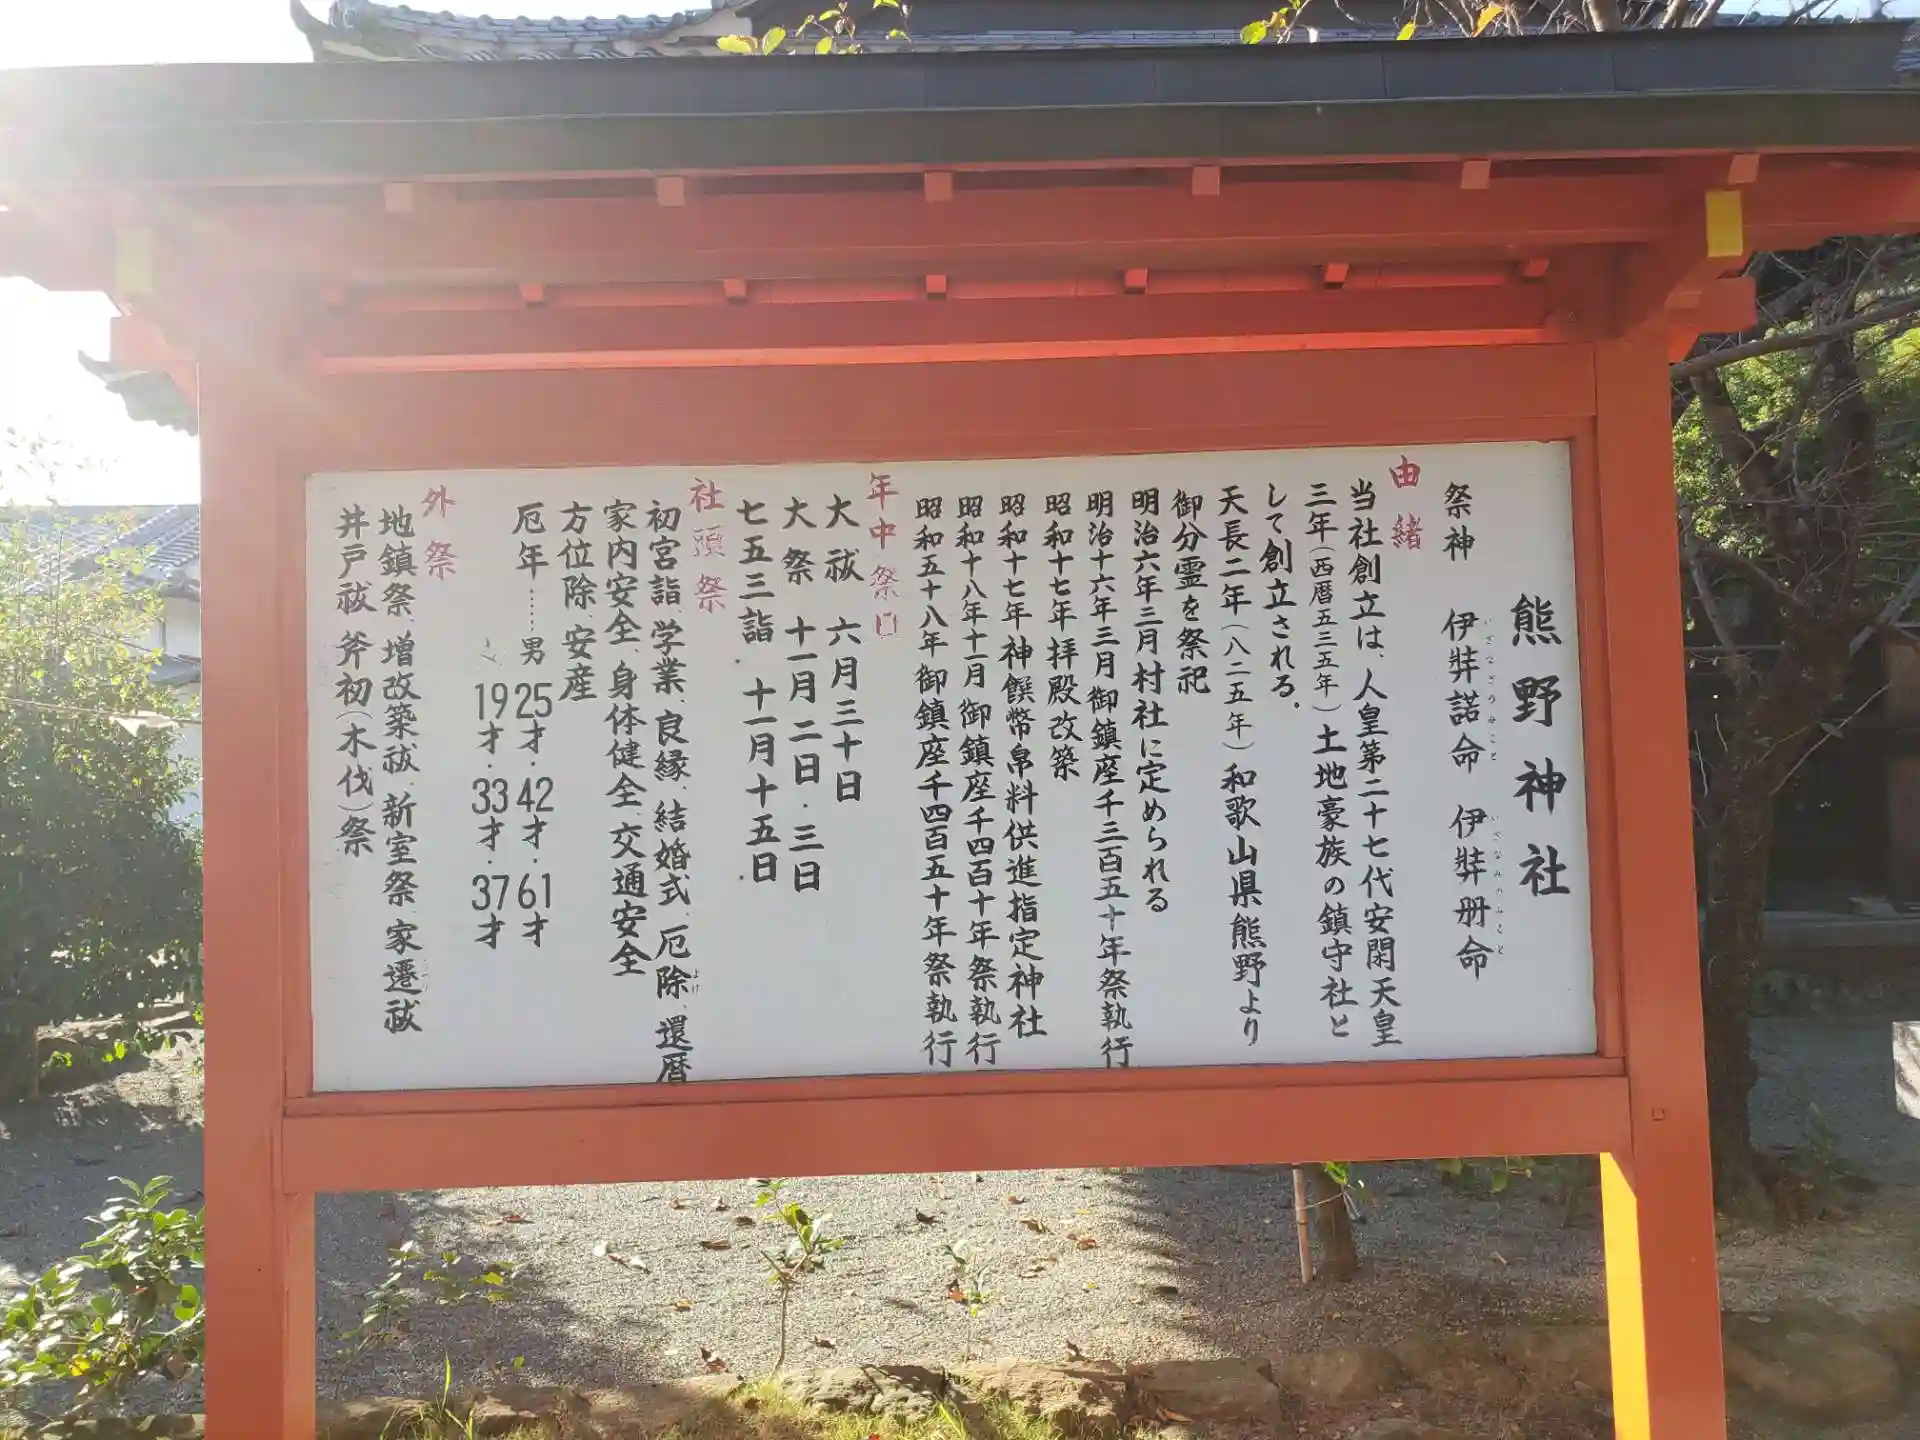 熊野神社
祭神 伊弉諾命 伊弉冊命
いざなぎのみこと いざなみのみこと
由緒
当社創立は、人皇第二十七代安閑天皇
三年(西暦五三五年)土地豪族の鎮守社と
して創立される。
天長二年(八二五年)和歌山県熊野より
御分霊を祭祀
明治六年三月村社に定められる
明治十六年三月御鎮座千三百五十年祭執行
昭和十七年拝殿改築
昭和十七年神饌幣帛料供進指定神社
昭和十八年十一月御鎮座千四百十年祭執行
昭和五十八年御鎮座千四百五十年祭執行
年中祭日
大祓 六月三十日
大祭 十一月二日・三日
七五三詣 十一月十五日
社頭祭
初宮詣、学業、良縁、結婚式、厄除、還暦
よけ
家内安全、身体健全、交通安全
方位除、安産
厄年……男 25才・42才・61才
19才・33才・37才
外祭
地鎮祭、増改築祓、新室祭、家遷祓
井戸祓、斧初(木伐)祭